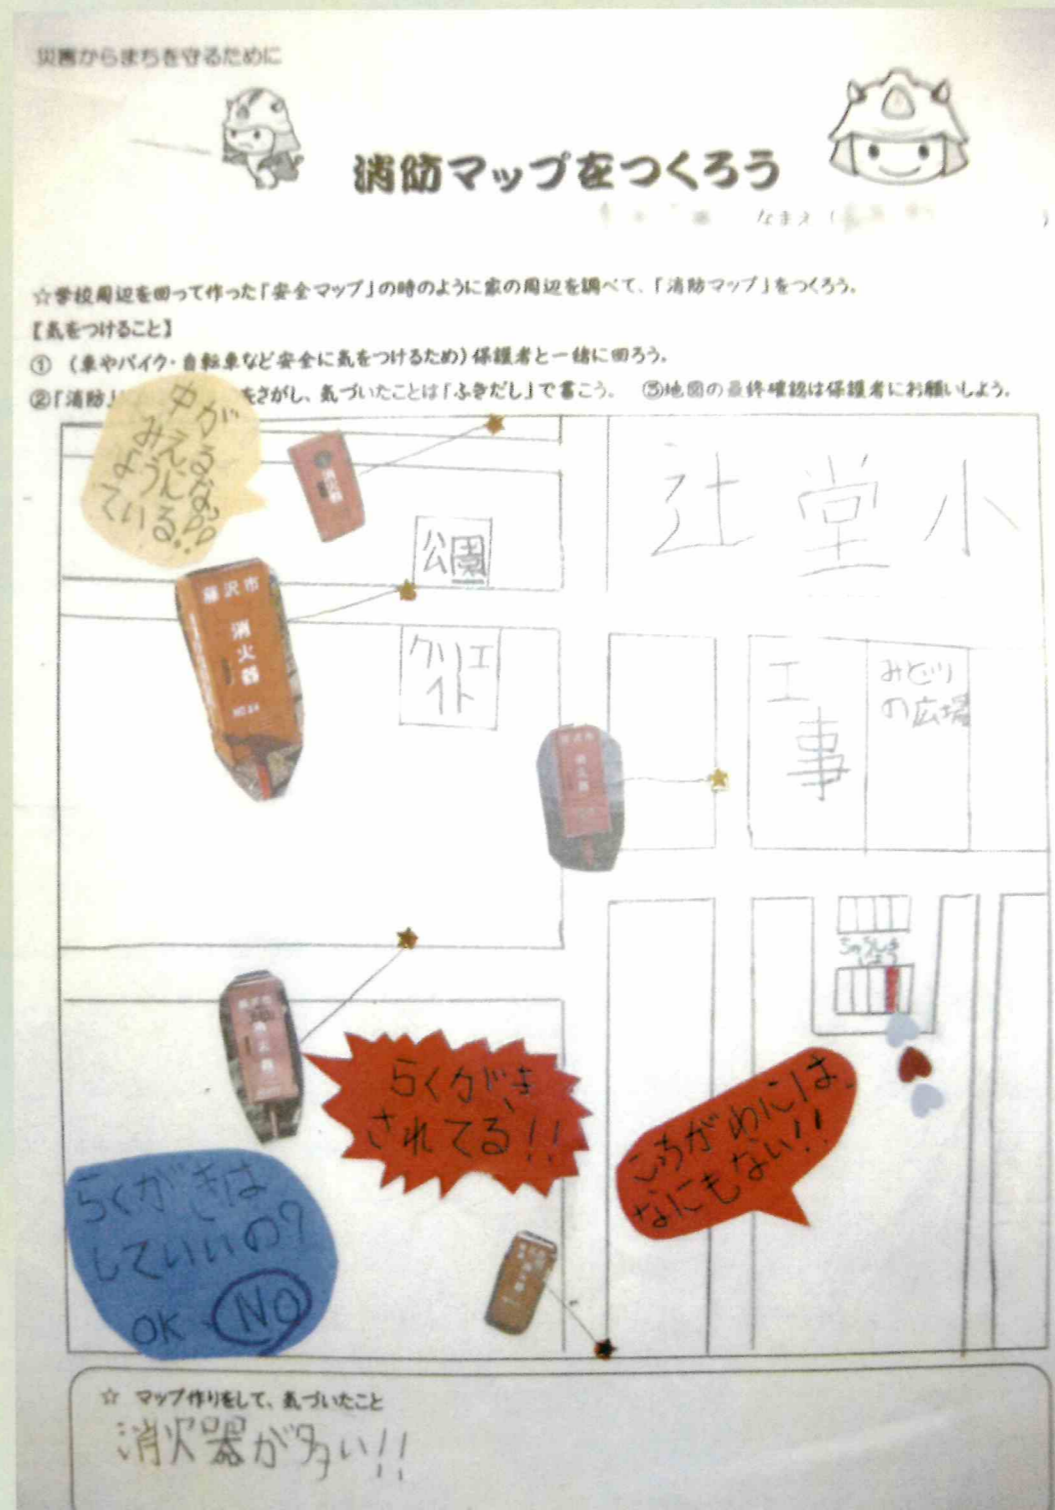 災害からまちを守るために
消防マップをつくろう
なまえ(
☆学校周辺を回って作った「安全マップ」の時のように家の周辺を調べて、「消防マップ」をつくろう。
【気をつけること】
① (車やバイク・自転車など安全に気をつけるため)保護者と一緒に回ろう。
②「消防」
をさがし、気づいたことは「ふきだし」で書こう。 ③地図の最終確認は保護者にお願いしよう。
中が
みえる
ようになっ
ている!!
消火器
辻堂小
公園
藤沢市
消火器
NO.24
クリエ
イト
工事
みどり
の広場
藤沢市
消火器
ちゅうしゃ
じょう
藤沢市
消火器
らくがき
されてる!!
こちがめんには、
なにもない!!
らくがきは
していいの?
OK NO
☆ マップ作りをして、気づいたこと
消火器が多い!!